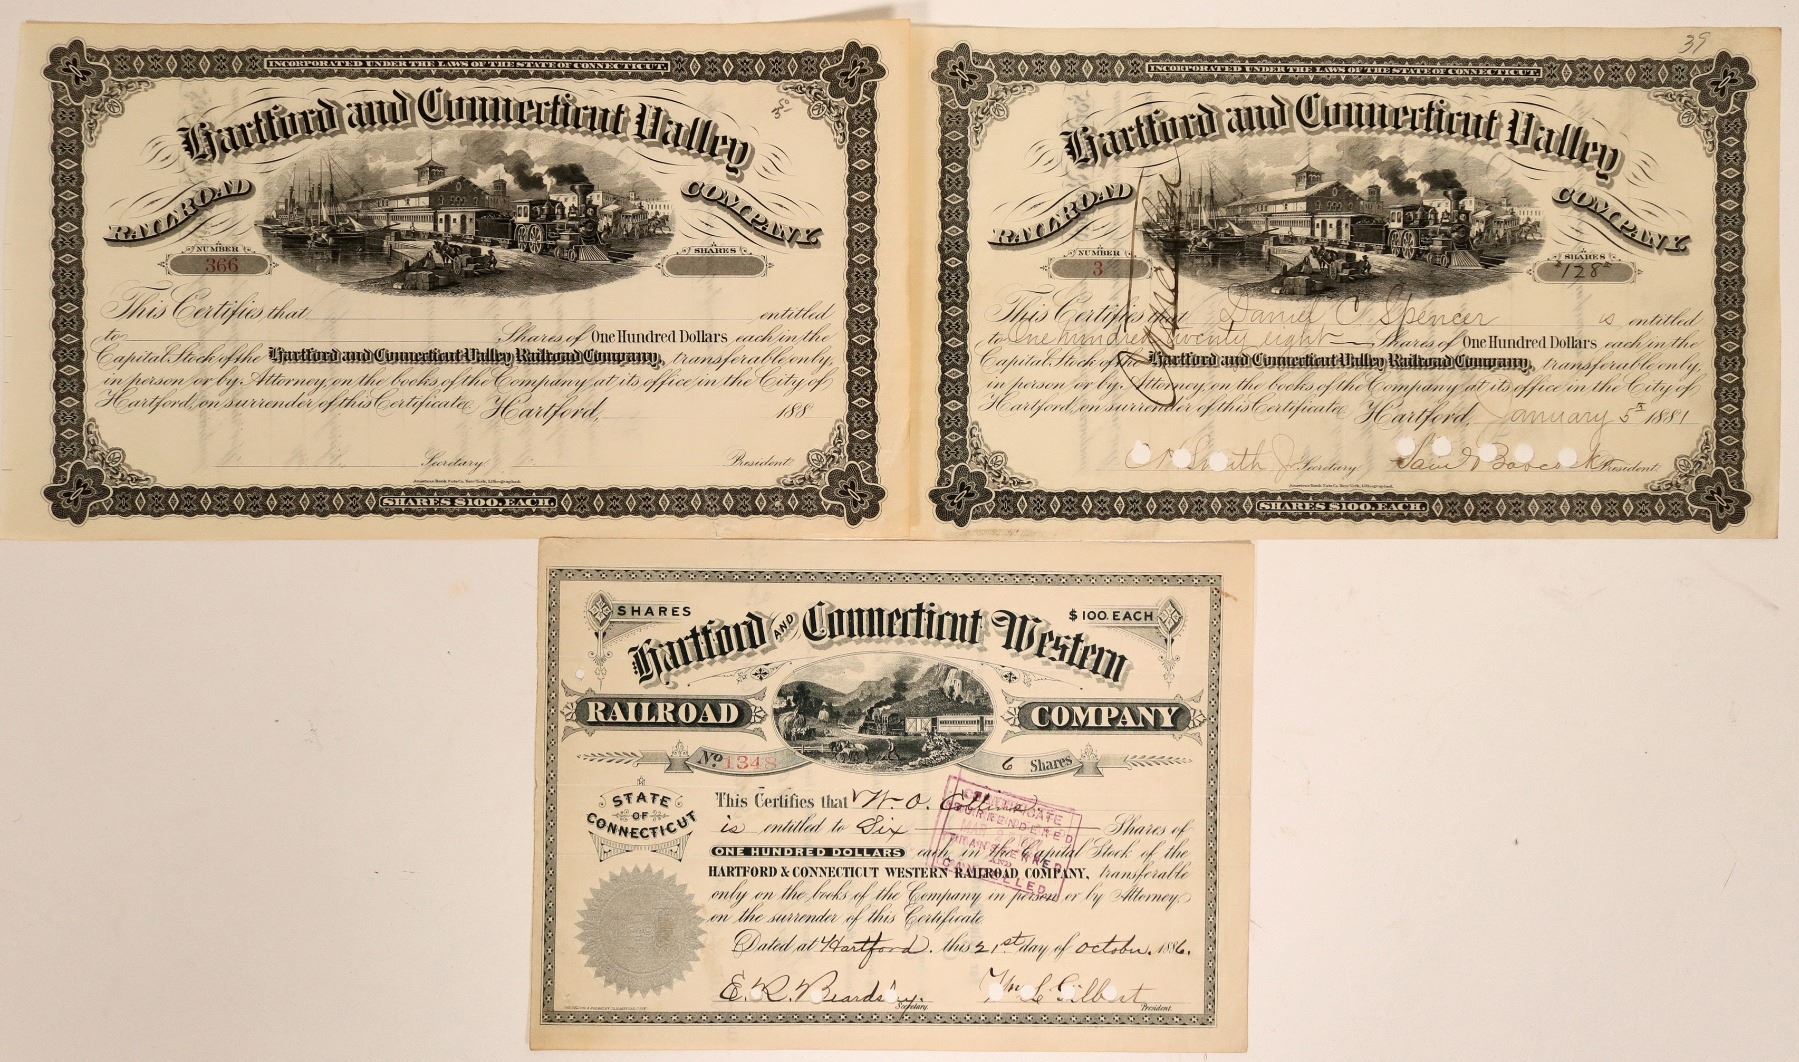 INCORPORATED UNDER THE LAWS OF THE STATE OF CONNECTICUT.
Hartford and Connecticut Valley
RAILROAD COMPANY
NUMBER
366
SHARES
This Certifies that entitled
to Shares of One Hundred Dollars each in the
Capital Stock of the Hartford and Connecticut Valley Railroad Company, transferable only,
in person or by Attorney, on the books of the Company at its office in the City of
Hartford, on surrender of this Certificate. Hartford, 188
Secretary President
American Bank Note Co. New York, Lithographed.
SHARES $100, EACH.
39
INCORPORATED UNDER THE LAWS OF THE STATE OF CONNECTICUT.
Hartford and Connecticut Valley
RAILROAD COMPANY
NUMBER
3
SHARES
128
Cancelled
This Certifies that Daniel C. Spencer is entitled
to One hundred twenty eight Shares of One Hundred Dollars each in the
Capital Stock of the Hartford and Connecticut Valley Railroad Company, transferable only,
in person or by Attorney, on the books of the Company at its office in the City of
Hartford, on surrender of this Certificate. Hartford, January 5th 1881
Smith Jr Secretary Babcock President
American Bank Note Co. New York, Lithographed.
SHARES $100, EACH.
SHARES $100. EACH
Hartford AND Connecticut Western
RAILROAD COMPANY
No. 1348 6 Shares
STATE
OF
CONNECTICUT
This Certifies that W. O.
is entitled to Six Shares of
ONE HUNDRED DOLLARS each in the Capital Stock of the
HARTFORD & CONNECTICUT WESTERN RAILROAD COMPANY, transferable
only on the books of the Company in person or by Attorney
on the surrender of this Certificate
CERTIFICATE
SURRENDERED
AND
CANCELLED
Dated at Hartford, this 21st day of October. 1886.
E. R. Beardsley. Wm L Gilbert
Secretary. President